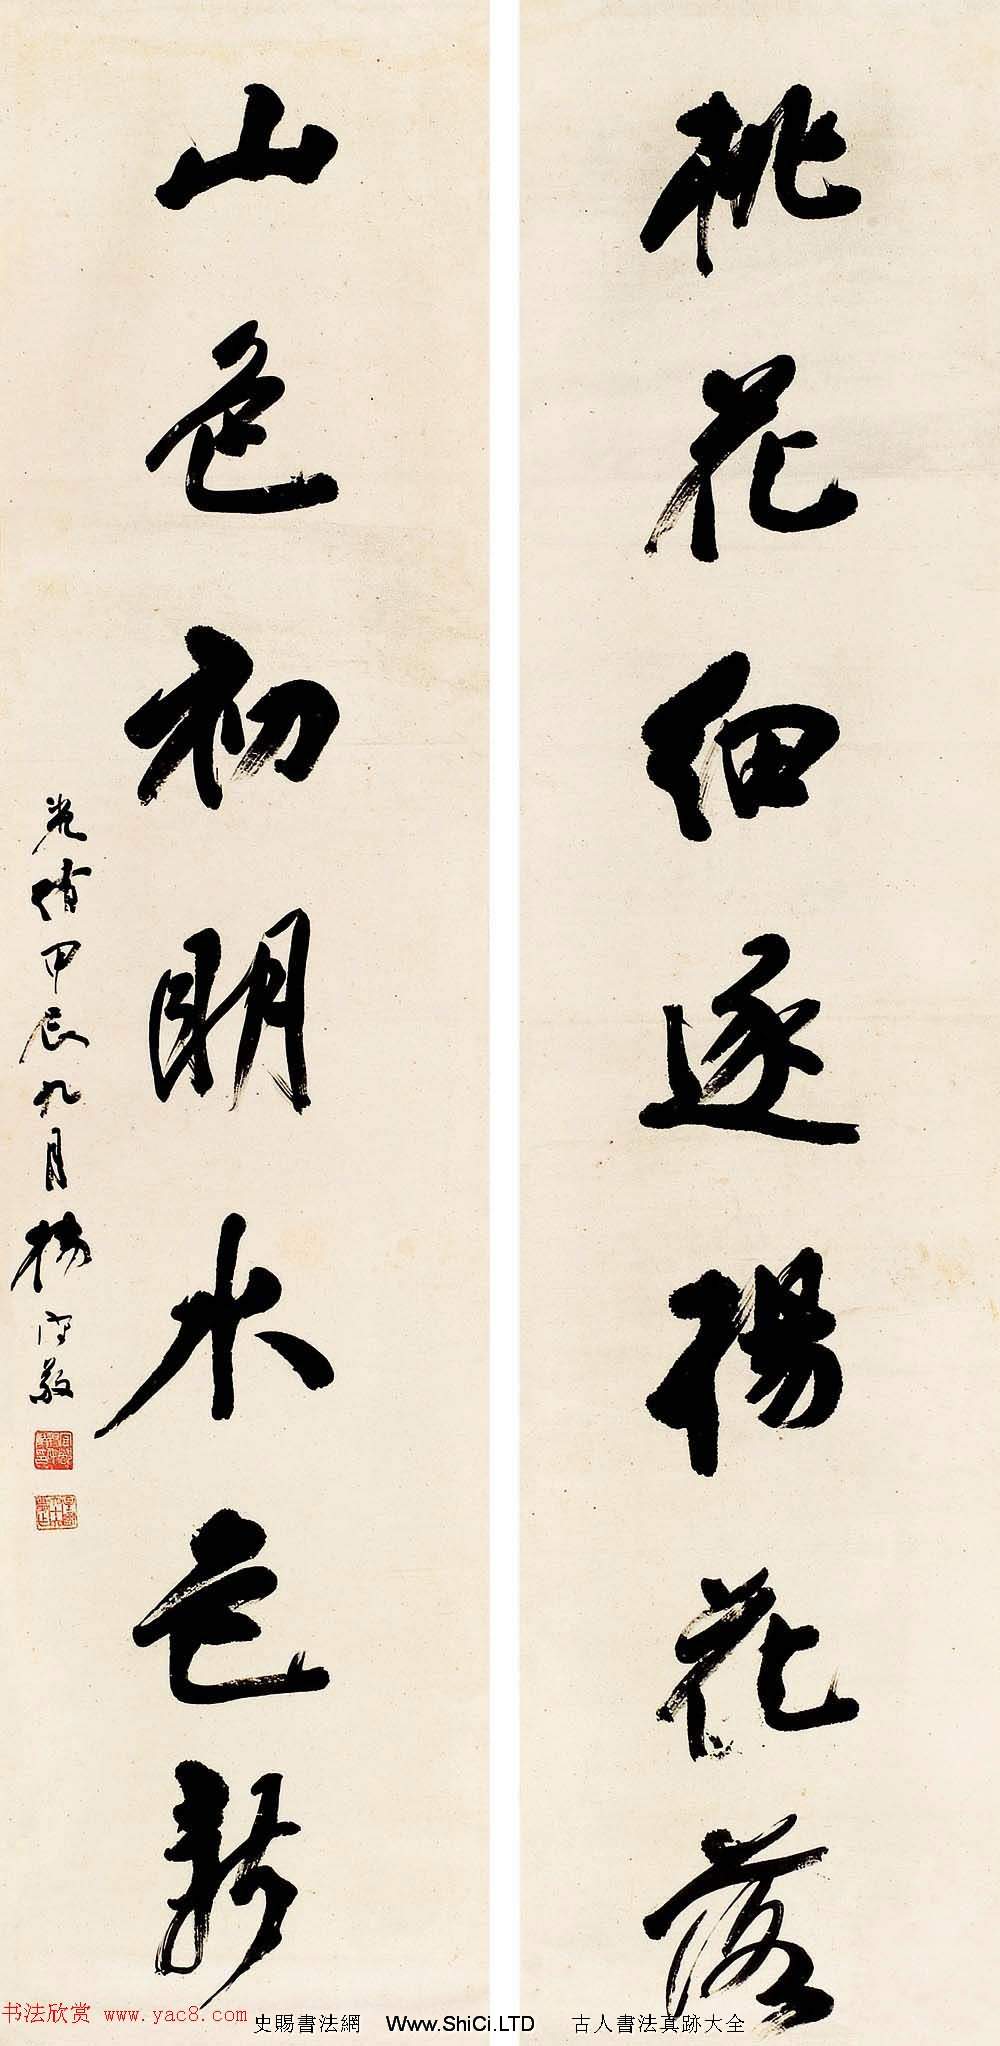 桃花細逐楊花落
山色初明水色新
光緒甲辰九月楊守敬
书法欣赏 www.yac8.com
史賜書法網 Www.ShiCi.LTD 古人書法真跡大全